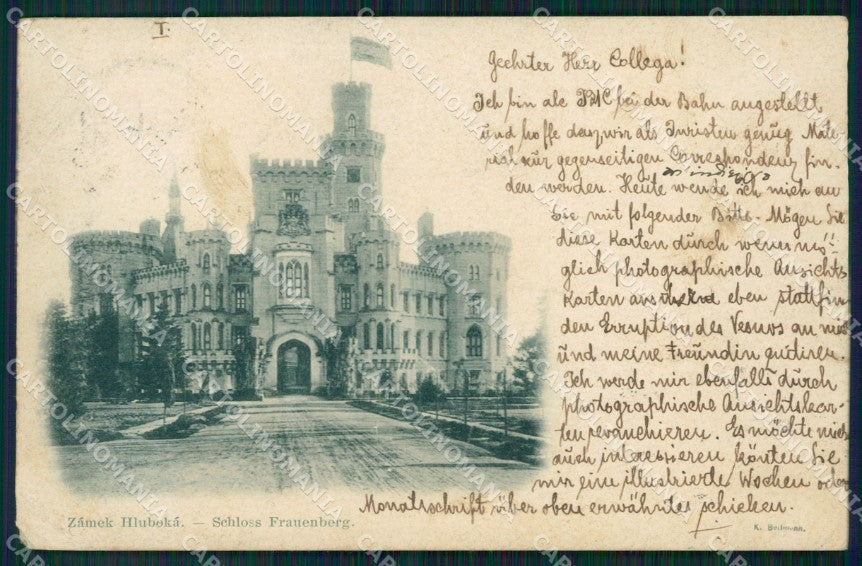 I.
Geehrter Herr Collega!
Ich bin als bei der Bahn angestellt
und hoffe dasz wir als Juristen genug Mate-
rial zur gegenseitigen Correspondenz fin-
den werden. Heute wende ich mich an
Sie mit folgender Bitte. Mögen Sie
diese Karten durch wenn mö-
glich photographische Ansichts
Karten aus eben stattfin
den Erruption des Vesuvs an mich
und meine Freundin
Ich werde mir ebenfalls durch
photographische Ansichtskar-
ten revanchieren. Es möchte mich
auch interessieren könten Sie
mir eine illustrierte Wochen oder
Monatsschrift über oben erwähntes schicken.
Zámek Hluboká. — Schloss Frauenberg.
CARTOLINOMANIA